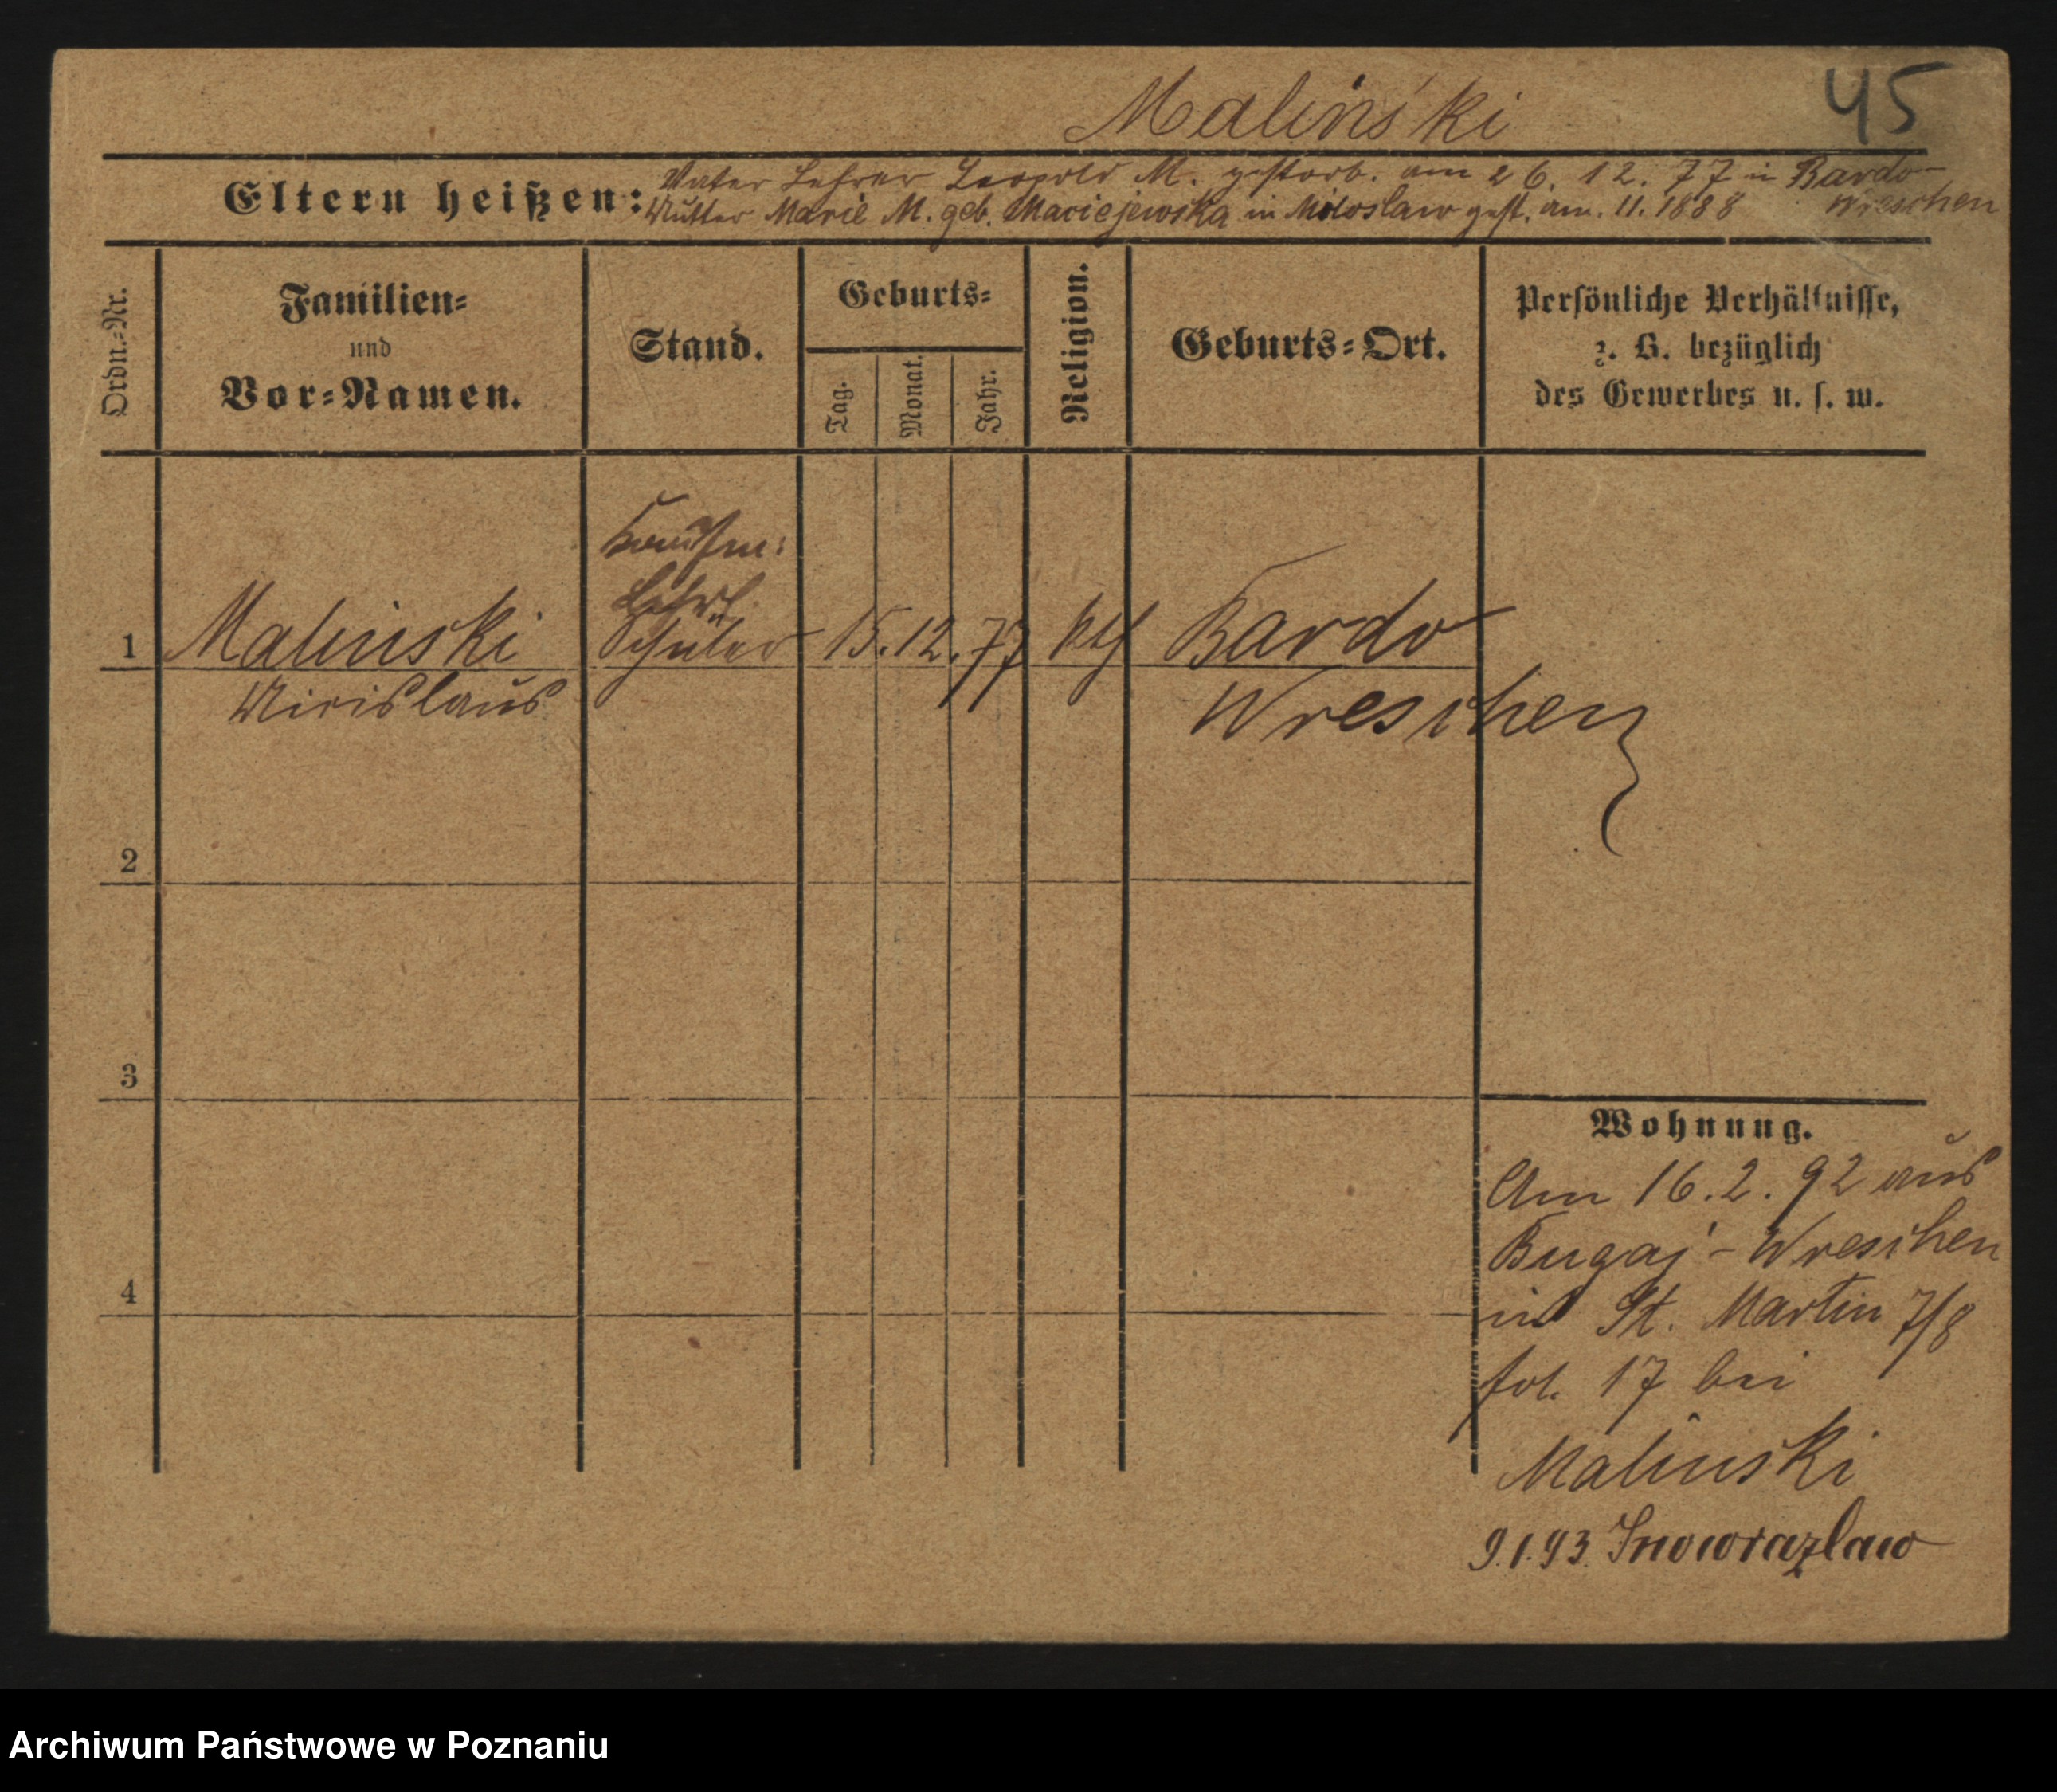 Maliński
45
Eltern heißen:
Vater Lehrer Leopold M. gestorb. am 26. 12. 77 in Bardo-
Wreschen
Mutter Marie M. geb. Maciejewska in Miloslaw gest. am. 11. 1888
Ordn.-Nr.
Familien-
und
Vor-Namen.
Stand.
Geburts-
Tag.
Monat.
Jahr.
Religion.
Geburts-Ort.
Persönliche Verhältnisse,
z. B. bezüglich
des Gewerbes u. s. w.
Kaufm:
Lehrl.
1 Malinski Schüler 15. 12. 77 kth Bardo
Wreschen
2
3
4
Wohnung.
Am 16. 2. 92 aus
Bugaj - Wreschen
in St. Martin 7/8
fol. 17 bei
Malinski
9.1.93. Inowrazlaw
Archiwum Państwowe w Poznaniu